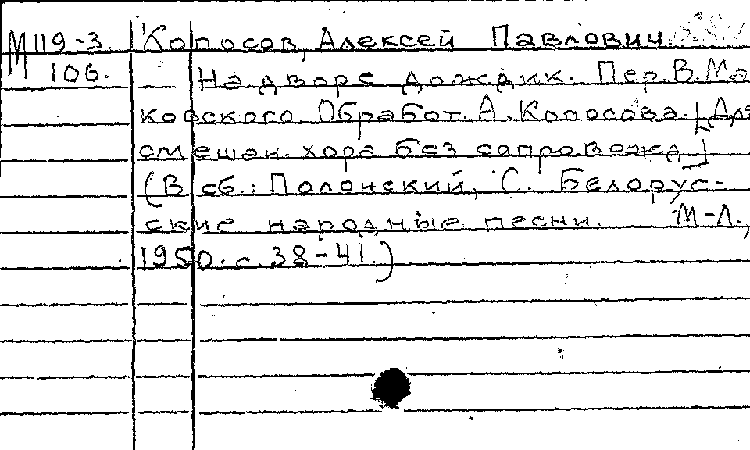 М119-3 Копосов, Алексей Павлович
106. На дворе дождик. Пер. В. Ма
ковского. Обработ. А. Копосова. [Для
смешан. хора без сопровожд.]
(В сб.: Полонский, С. Белорус-
ские народные песни. М-Л.,
1950. с. 38-41.)